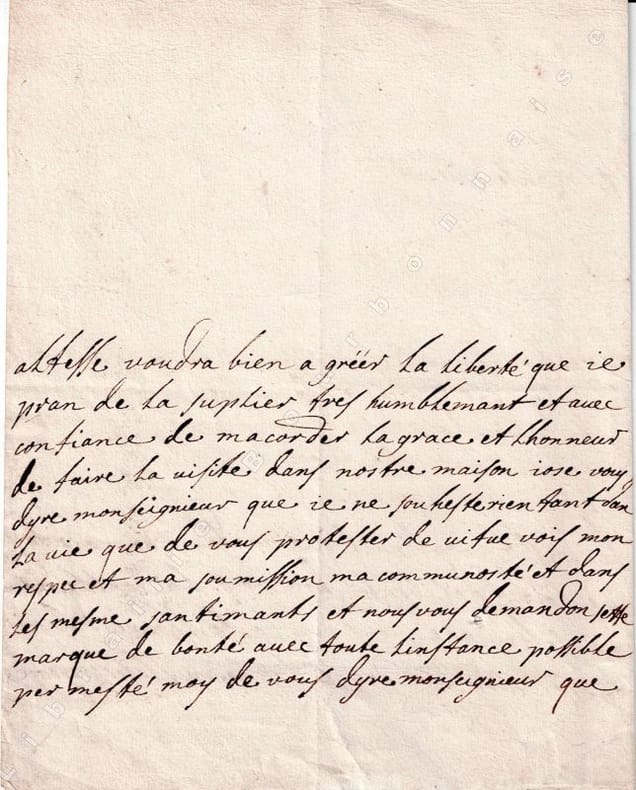 altesse voudra bien a gréér la liberté que ie
pran de la suplier tres humblemant et avec
confiance de macorder la grace et lhonneur
de faire la visite dans nostre maison iose vous
dyre monseignieur que ie ne souheste rien tant dan
la vie que de vous protester de vitue vois mon
respec et ma soumission ma communosté et dans
les mesme santimants et nous vous demandon sette
marque de bonté avec toute linstance possible
per mesté moy de vous dyre monseignieur que
Librairie Bourbonnaise